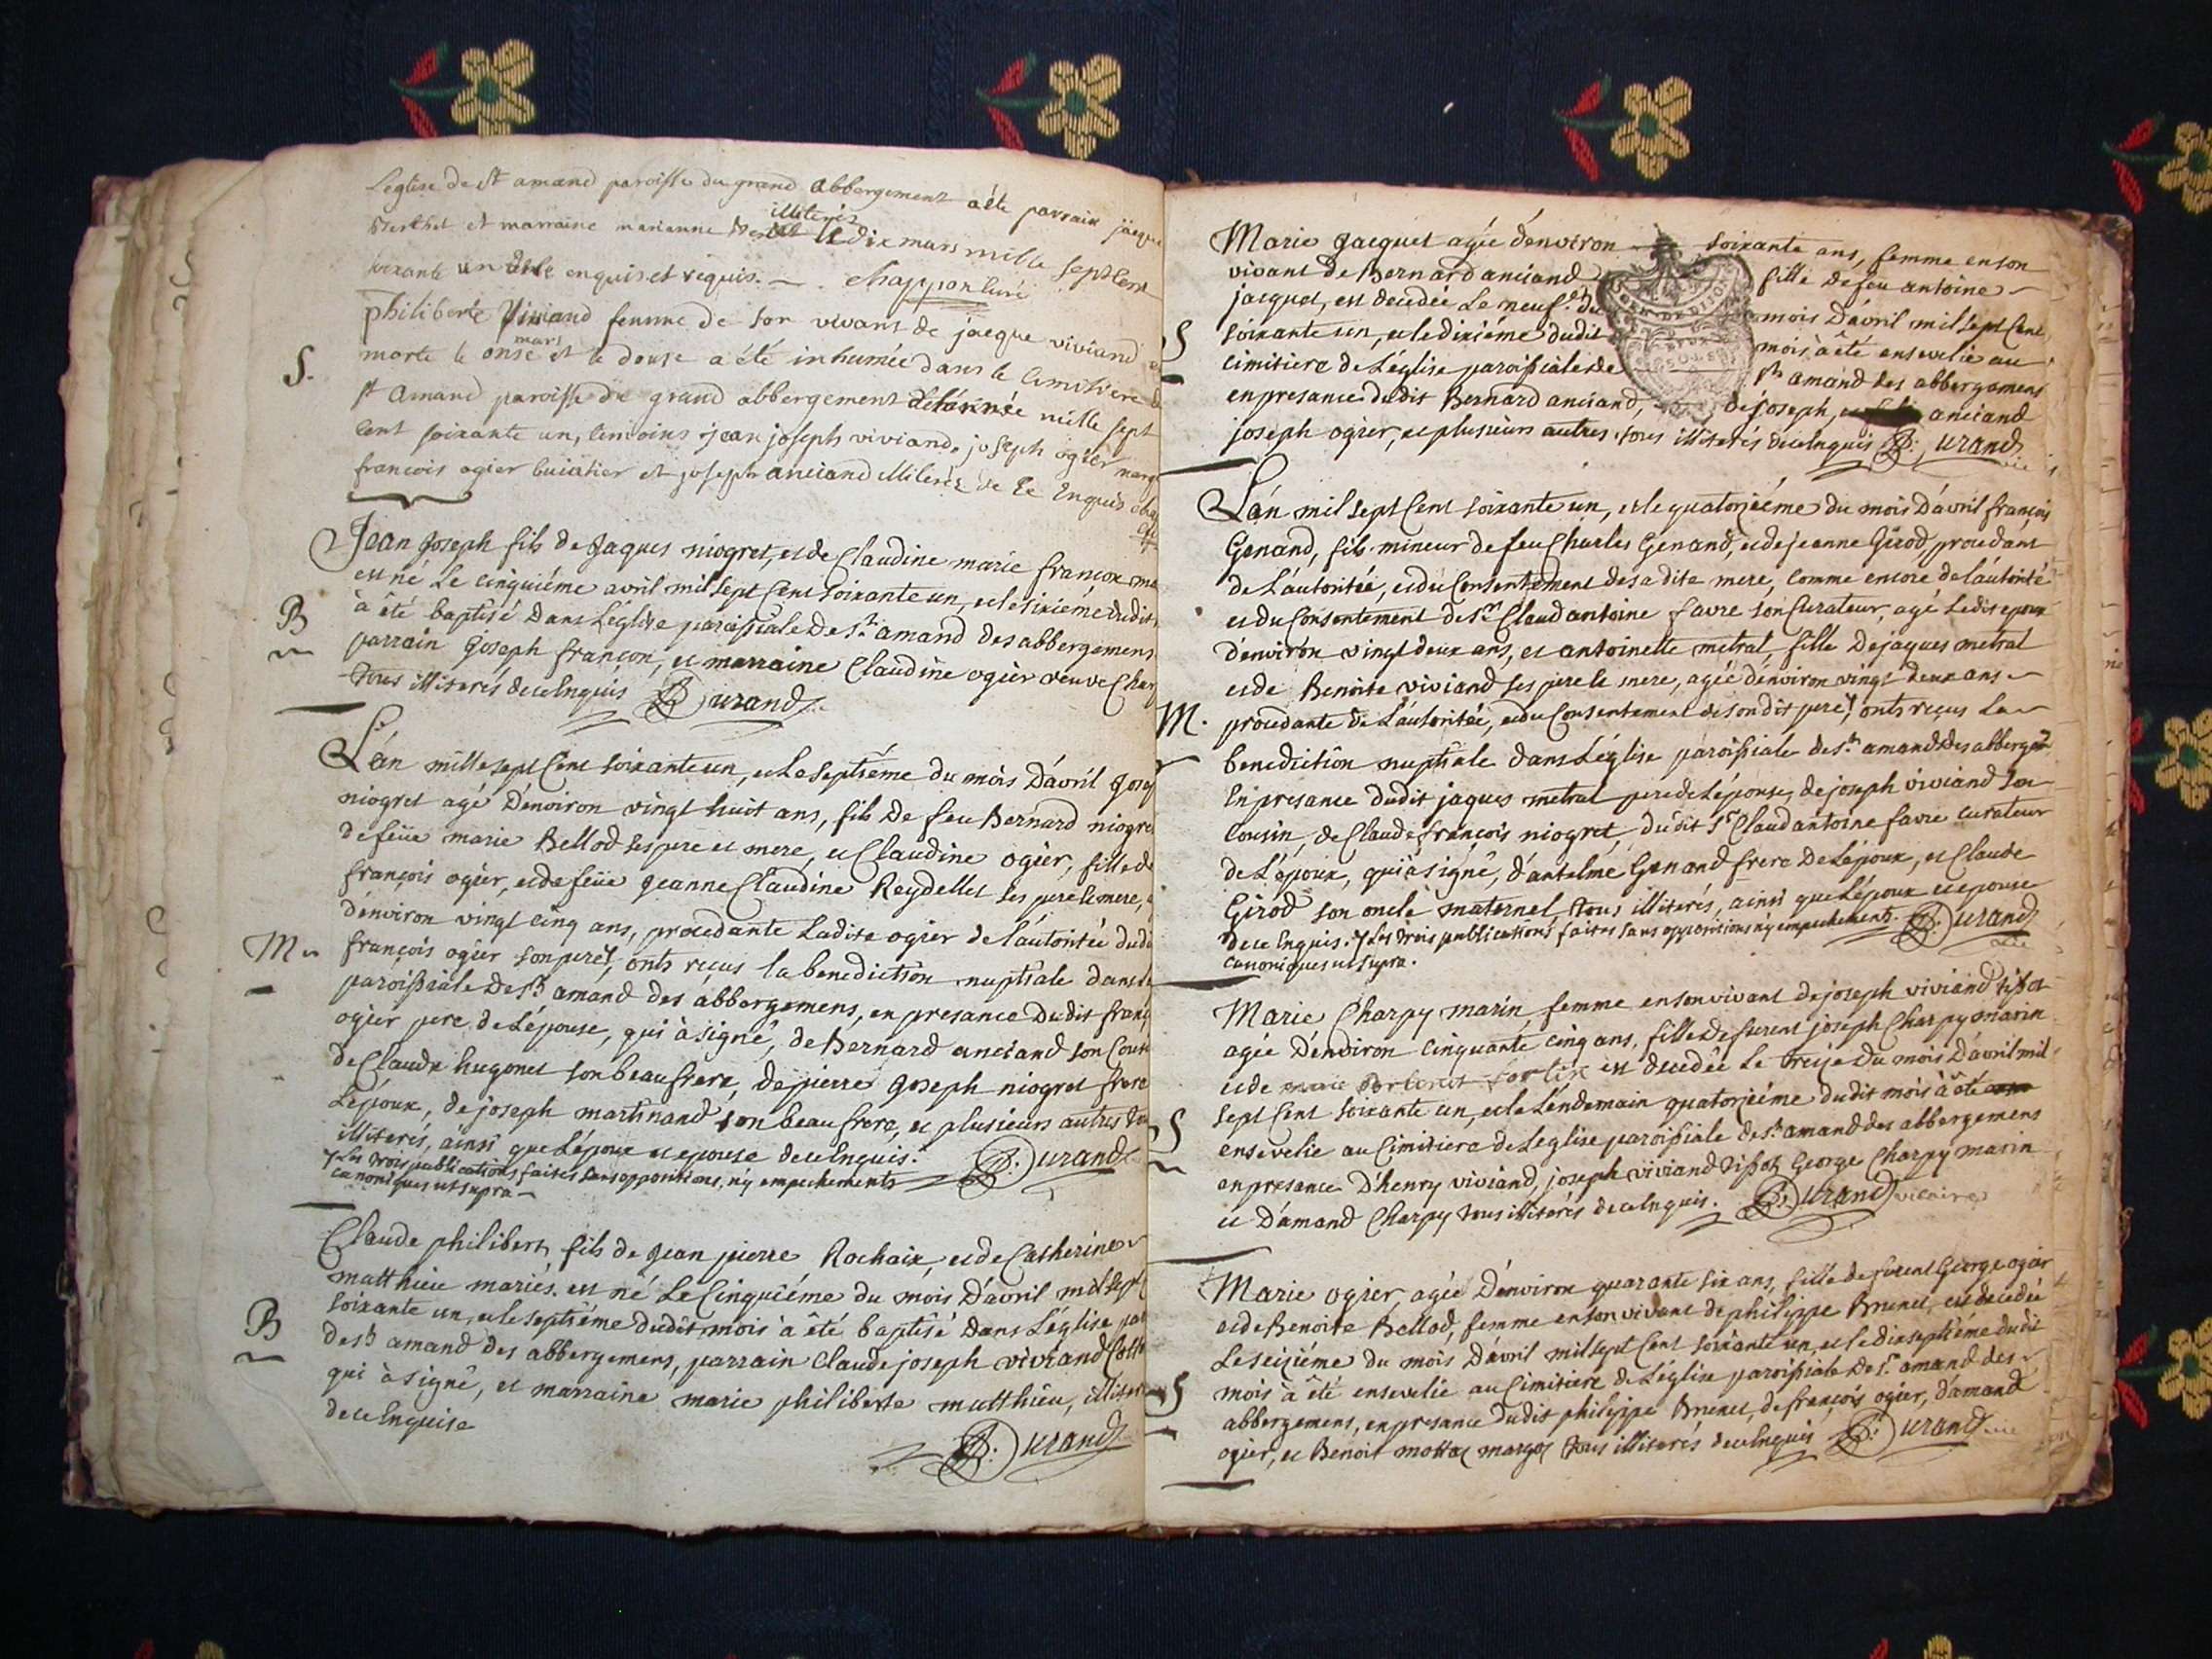 Leglise de st amand paroisse du grand abbergement a été parrain jacque
Berthet et marraine marianne illiterés le dix mars mille sept Cent
soixante un de ce enquis et requis. chappon curé
philiberte Viviand femme de son vivant de jacque viviand
S.
morte le onse mars et le douse a été inhumée dans le Cimetiere
st amand paroisse du grand abbergement de l'année mille sept
cent soixante un, temoins jean joseph viviand, joseph ogier
francois ogier et joseph anciand illiterés de ce Enquis
Jean Joseph fils de Jaques niogret, et de Claudine marie françon
est né Le cinquiéme avril mil sept Cent soixante un, et le sixiéme dudit
B
à été baptisé Dans L'église paroissiale de St. amand des abbergemens
parrain Joseph françon, et marraine Claudine ogier veuve
tous illiterés de ce Enquis Durand
L'an mille sept Cent soixante un, et Le septiéme du mois D'avril
niogret agé D'environ vingt huit ans, fils De feu Bernard niogret
de feüe marie Bellod ses pere et mere, et Claudine ogier, fille de
françois ogier, et de feüe Jeanne Claudine Reydellet ses pere et mere,
d'environ vingt cinq ans, procedante Ladite ogier de l'autorité
M
françois ogier son pere, onts reçus la benediction nuptiale dans
paroissiale De St amand des abbergemens, en presance Dudit
ogier pere de L'épouse, qui à signé, de Bernard anciand son
de Claude hugonet son beau frere, de pierre Joseph niogret frere
L'époux, de joseph martinand son beau frere, et plusieurs autres
illiterés, ainsi que L'époux et epouse de ce Enquis. Durand
Les trois publications faites sans oppositions, ny empechements
canoniques ut supra
Claude philibert, fils de Jean pierre Rochaix, et de Catherine
matthieu mariés, est né Le Cinquiéme du mois D'avril mil sept
B
soixante un, et le septiéme dudit mois à été baptisé Dans L'église
de St amand des abbergemens, parrain Claude joseph viviand
qui à signé, et marraine marie philiberte matthieu,
de ce Enquise
Durand
Marie Jacquet agée d'environ soixante ans, femme en son
vivant de Bernard anciand fille de feu antoine
jacquet, est decedée Le neuf du mois D'avril mil sept Cent
S
soixante un, et le dixiéme dudit mois, à été ensevelie au
cimitiere de L'église paroissiale de St amand des abbergemens
en presance dudit Bernard anciand, de joseph, anciand
joseph ogier, et plusieurs autres tous illiterés de ce Enquis Durand
L'an mil sept Cent soixante un, et le quatorziéme du mois D'avril françois
Genand, fils mineur de feu Charles Genand, et de jeanne Girod, procedant
de L'autoritée, et du Consentement de sa dite mere, Comme encore de l'autorité
et du Consentement de Sr. Claud antoine favre son Curateur, agé Ledit epoux
D'environ vingt deux ans, et antoinette metral, fille De jaques metral
et de Benoite viviand ses pere et mere, agée d'environ vingt deux ans
M.
procedante De L'autoritée, et du Consentement de son dit pere, onts reçus La
benediction nuptiale dans L'église paroissiale de St. amand des
En presance Dudit jaques metral pere de L'épouse, de joseph viviand son
Cousin, de Claude françois niogret, du dit Sr Claud antoine favre curateur
de L'époux, qui à signé, d'antelme Genand frere De L'époux, et Claude
Girod son oncle maternel, tous illiterés, ainsi que L'époux et epouse
de ce Enquis. Les trois publications faites sans oppositions ny empechements. Durand
canoniques ut supra.
Marie Charpy marin, femme en son vivant de joseph viviand tissot
agée D'environ cinquante cinq ans, fille De furent joseph Charpy marin
et de est decedée Le treize du mois D'avril mil
S
sept Cent soixante un, et le Lendemain quatorziéme du dit mois à été
ensevelie au Cimitiere de L'eglise paroissiale de St. amand des abbergemens
en presance D'henry viviand, joseph viviand tissot, George Charpy marin
et D'amand Charpy tous illiterés de ce Enquis. Durand vicaire
Marie ogier, agée D'environ quarante six ans, fille de furent George ogier
et de Benoite Bellod, femme en son vivant de philippe Brunet, est decedée
Le seiziéme du mois D'avril mil sept Cent soixante un, et le dixseptiéme dudit
S
mois à été ensevelie au Cimitiere de L'église paroissiale De St. amand des
abbergemens, en presance Dudit philippe Brunet, de françois ogier, d'amand
ogier, et Benoit tous illiterés de ce Enquis Durand